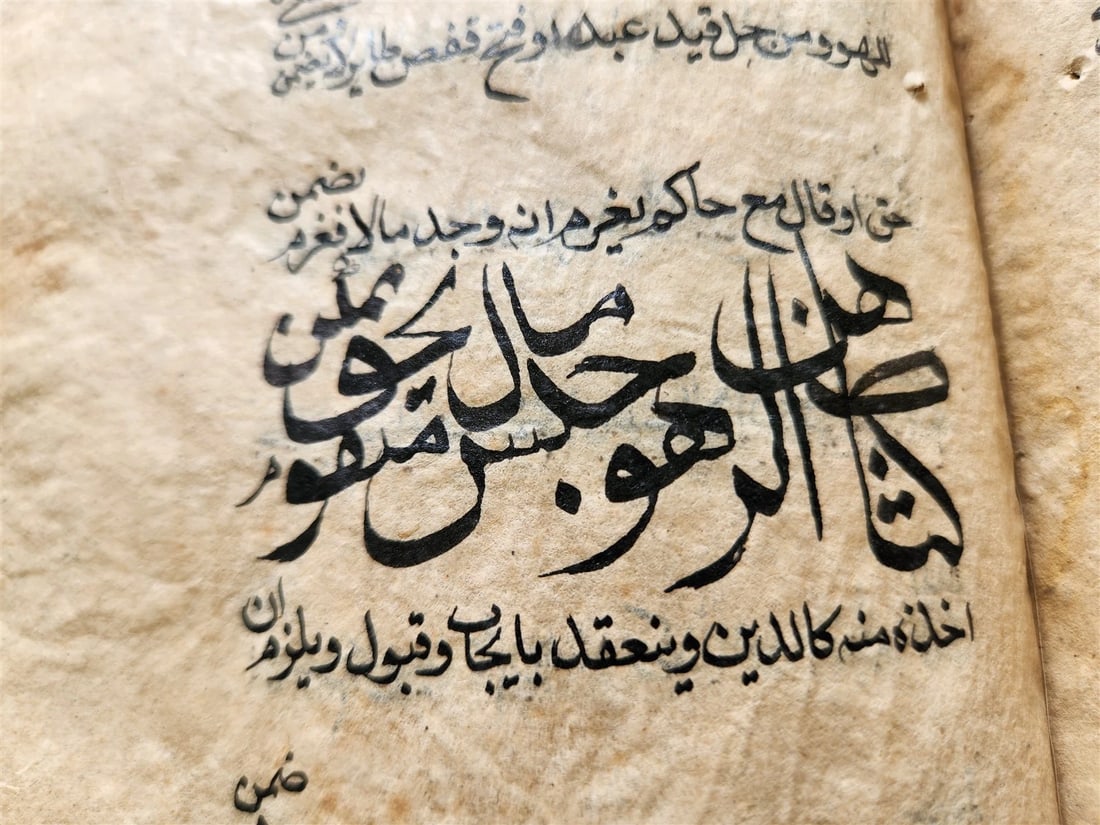 اللهو ومن حل قيد عبد او فتح قفص طاير لا يضمن ومن
حتى او قال مع حاكم يغرم انه وجد مالا فغرم يضمن
كتاب الرهن هو حبس مال متقوم بحق يمكن
اخذه منه كالدين وينعقد بايجاب وقبول ويلزم ان
ضمن